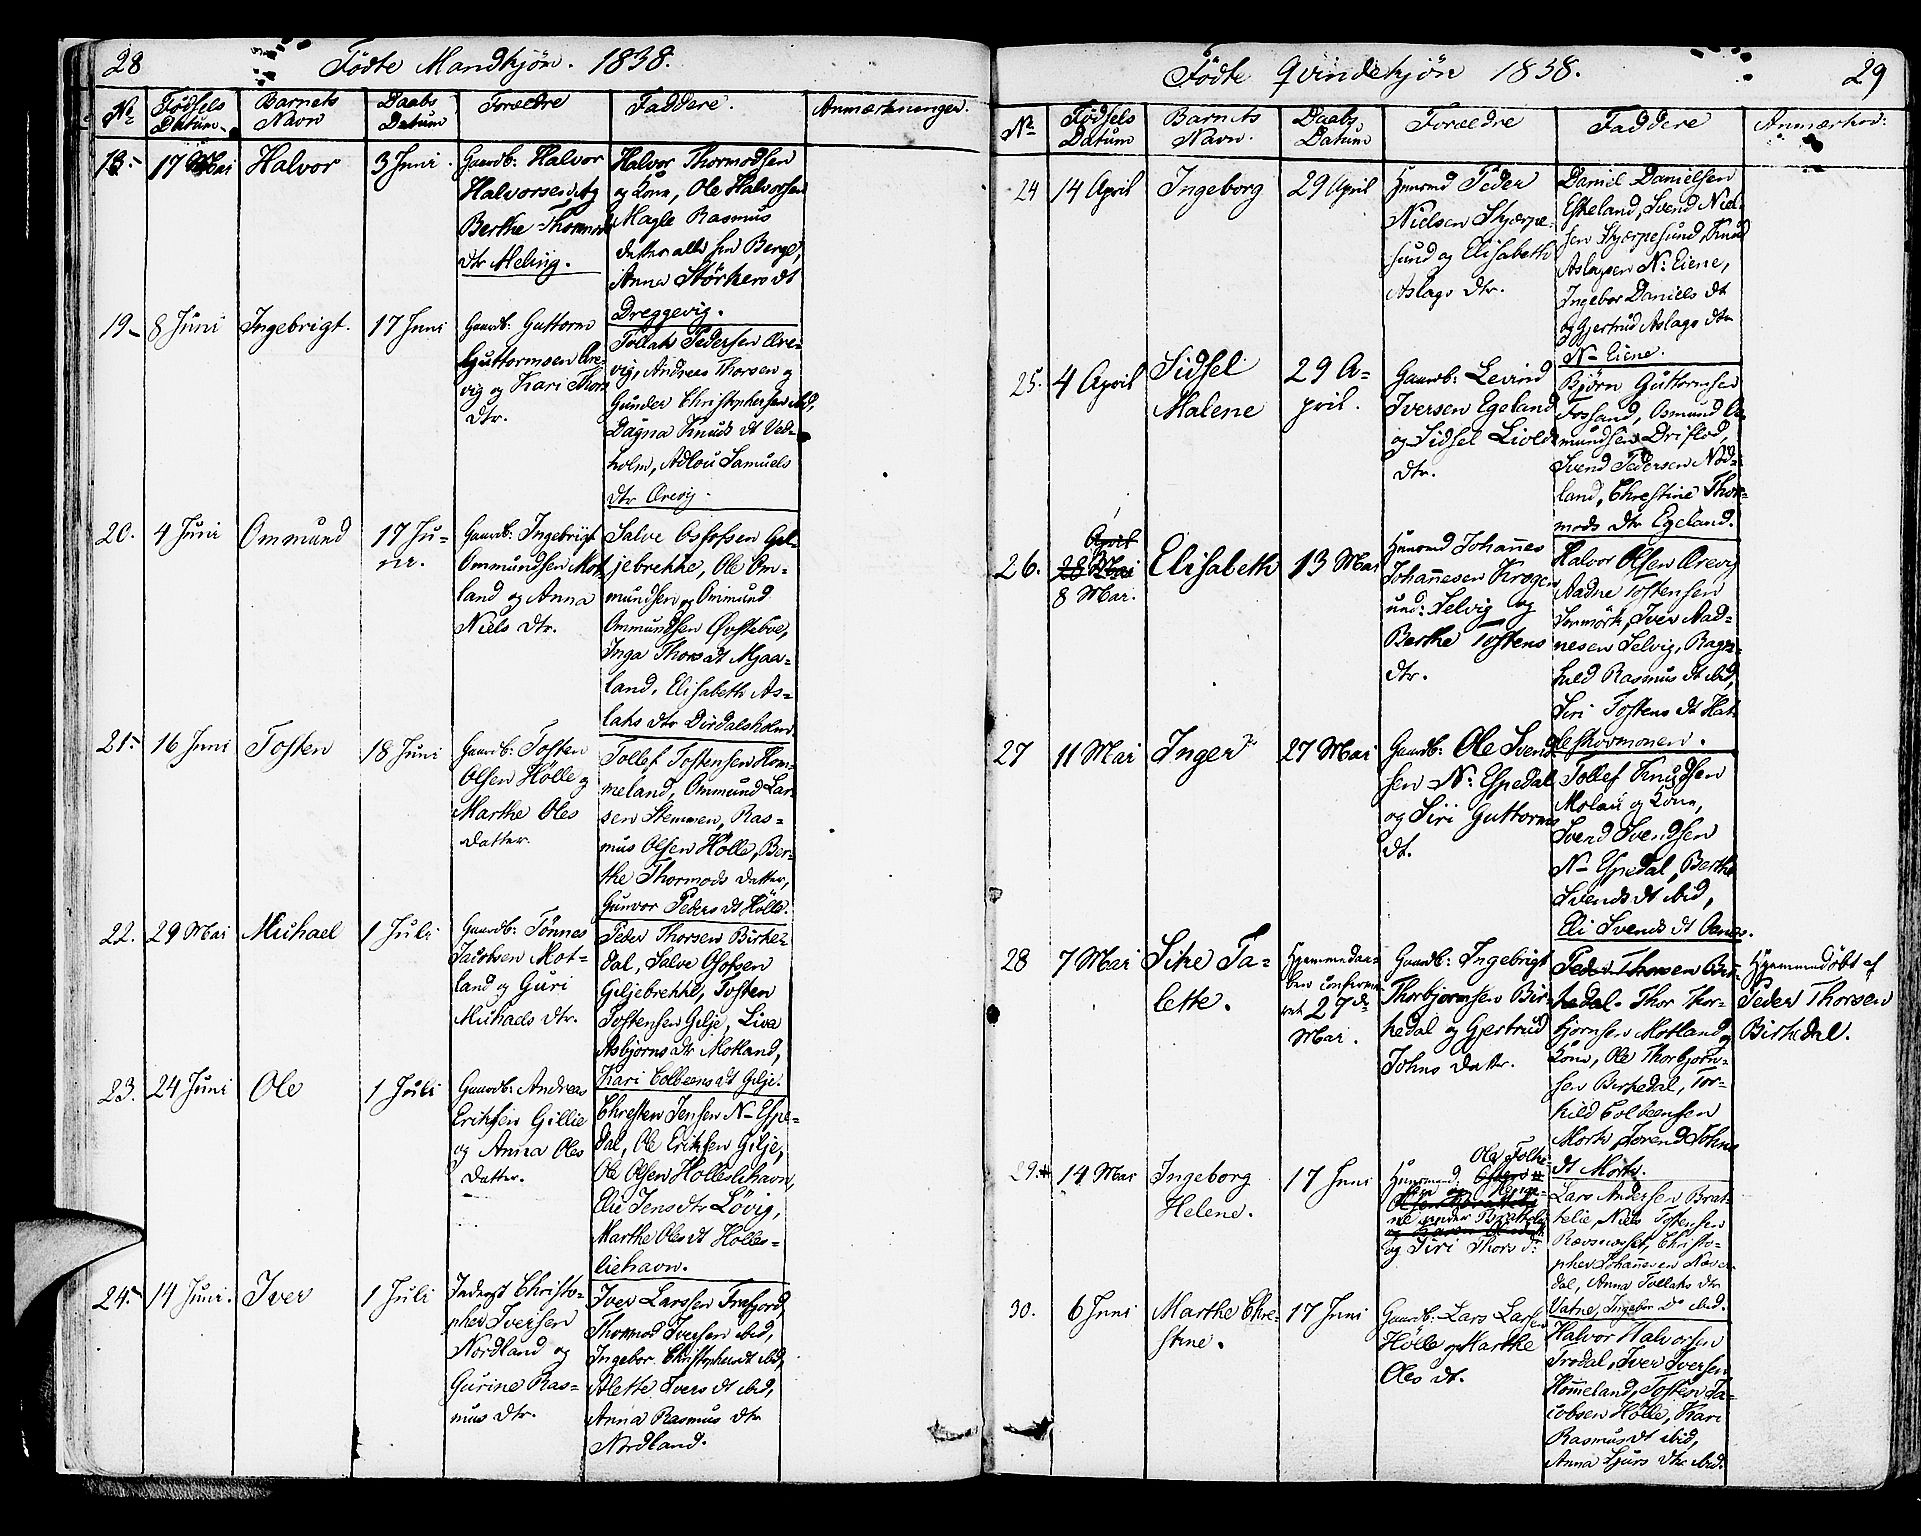 28
Födte Mandkjön. 1838.
No Födsels Datum. Barnets Navn Daabs Datum Forældre Faddere. Anmærkninger.
18. 17 Mai Halvor 3 Juni.
Gaardb: Halvor
Halvorsen og
Berthe Thormods
dtr Meling.
Halvor Thormodsen
og Kone, Ole Halvorsen
Magle Rasmus
datter alle fra Berge,
Anna Störkers dt
Dreggevig.
19. 8 Juni Ingebrigt. 17 Juni
Gaardb: Guttorm
Guttormsen Øre-
vig og Kari Thors
dtr.
Tollak Pedersen Øre-
vig, Andreas Thorsen og
Gunder Christophersen ibid,
Dagna Knuds dt Ved-
holm, Adlou Samuels
dtr Ørevig.
20. 4 Juni Ommund 17 Ju-
ni.
Gaardb: Ingebrigt
Ommundsen Mot
land og Anna
Niels dtr.
Salve Osfofsen Gil-
jebrekke, Ole Om-
mundsen og Ommund
Ommundsen Øvsteboe,
Inga Thors dt Mjaa-
land, Elisabeth As-
laks dtr Dirdalsholm.
21. 16 Juni Tosten 18 Juni
Gaardb: Tosten
Olsen Hölle og
Marthe Oles
datter.
Tollef Tostensen Hom-
meland, Ommund Lar-
sen Stemmen, Ras-
mus Olsen Hölle, Ber-
the Thormods datter,
Gunvor Peders dt Hölle.
22. 29 Mai Michael 1 Juli
Gaardb: Tönnes
Jacobsen Mot-
land og Guri
Michaels dtr.
Peder Thorsen Birke-
dal, Salve Osofsen
Giljebrekke, Tosten
Tostensen Gilje, Liva
Asbjörns dtr Motland,
Kari Colbeens dt Gilje.
23. 24 Juni Ole 1 Juli
Gaardb: Andreas
Eriksen Gillie
og Anna Oles
datter.
Chresten Jensen N- Espe-
dal, Ole Eriksen Gilje,
Ole Olsen Hollesl​ihavn,
Eli Jens dtr Lövig,
Marthe Oles dt Holles-
liehavn.
24. 14 Juni. Iver 1 Juli
Inderst Christo-
pher Iversen
Nordland og
Gurine Ras-
mus dtr.
Iver Larssen Frafjord,
Thormod Iversen ibid,
Ingebor Christophers dt ibid,
Alette Ivers dt ibid,
Anna Rasmus dtr
Nordland.
Födte Qvindekjön 1838.
29
No Födsels Datum Barnets Navn. Daabs Datum Forældre Faddere Anmærkn:
24 14 April Ingeborg 29 April
Huusmd Peder
Nielsen Skjærpe-
sund og Elisabeth
Aslags dtr.
Daniel Danielsen
Eskeland, Svend Niel-
sen Skjærpesund, Knud
Aslagsen N: Eiene,
Ingebor Daniels dt
og Gjertrud Aslags dtr
N- Eiene.
25. 4 April Sidsel
Malene
29 A-
pril.
Gaardb: Levind
Iversen Egeland
og Sidsel Livids
dtr.
Björn Guttormsen
Fosland, Osmund Os-
mundsen Driflod,
Svend Pedersen Nord-
land, Chrestine Thor-
mods dtr Egeland.
26. April
28 Mai
8 Mai.
Elisabeth 13 Mai
Huusmd Johannes
Johannesen Kragen
und: Selvig og
Berthe Tostens
dtr.
Halvor Olsen Ørevig
Aadne Tostensen
Sörmörk, Iver Aad-
nesen Selvig, Ragn-
hild Rasmus dt ibid,
Siri Tostens dt Hat-
leskormonen.
27 11 Mai Inger 27 Mai
Gaardb: Ole Svend
sen N: Espedal
og Siri Guttorms
dt.
Tollef Knudsen
Molau og Kone,
Svend Svendsen
N- Espedal, Berthe
Svends dt ibid,
Eli Svends dt Oanes.
28 7 Mai Sike Ta-
lette.
Hjemmedaa-
ben confirme-
ret 27de
Mai.
Gaardb: Ingebrigt
Thorbjörnsen Bir-
kedal og Gjertrud
Johns datter.
Peder Thorsen Bir-
kedal. Thor Thor-
björnsen Motland og
Kone, Ole Thorbjörn-
sen Birkedal, Tor-
kild Colbeensen
Mork, Sörend Johns
dt Mork.
Hjemmedöbt af
Peder Thorsen
Birkedal.
29. 14 Mai Ingeborg
Helene.
17 Juni
Ole Folke-
Huusmand
sen og
under Brattelie
og Siri Thors dt
Lars Andersen Brat-
telie, Niels Tostensen
Rævsnæsset, Christo-
pher Johannesen Næver-
dal, Anna Tollaks dtr
Vatne, Ingebor dt ibid.
30. 6 Juni Marthe Chre-
stine.
17 Juni
Gaardb: Lars Larsen
Hölle og Marthe
Oles dt.
Halvor Halvorsen
Frodal, Iver Iversen
Hommeland, Tosten Ja-
cobsen Hölle, Kari
Rasmus dt ibid,
Anna Sjurs dtr ibid.